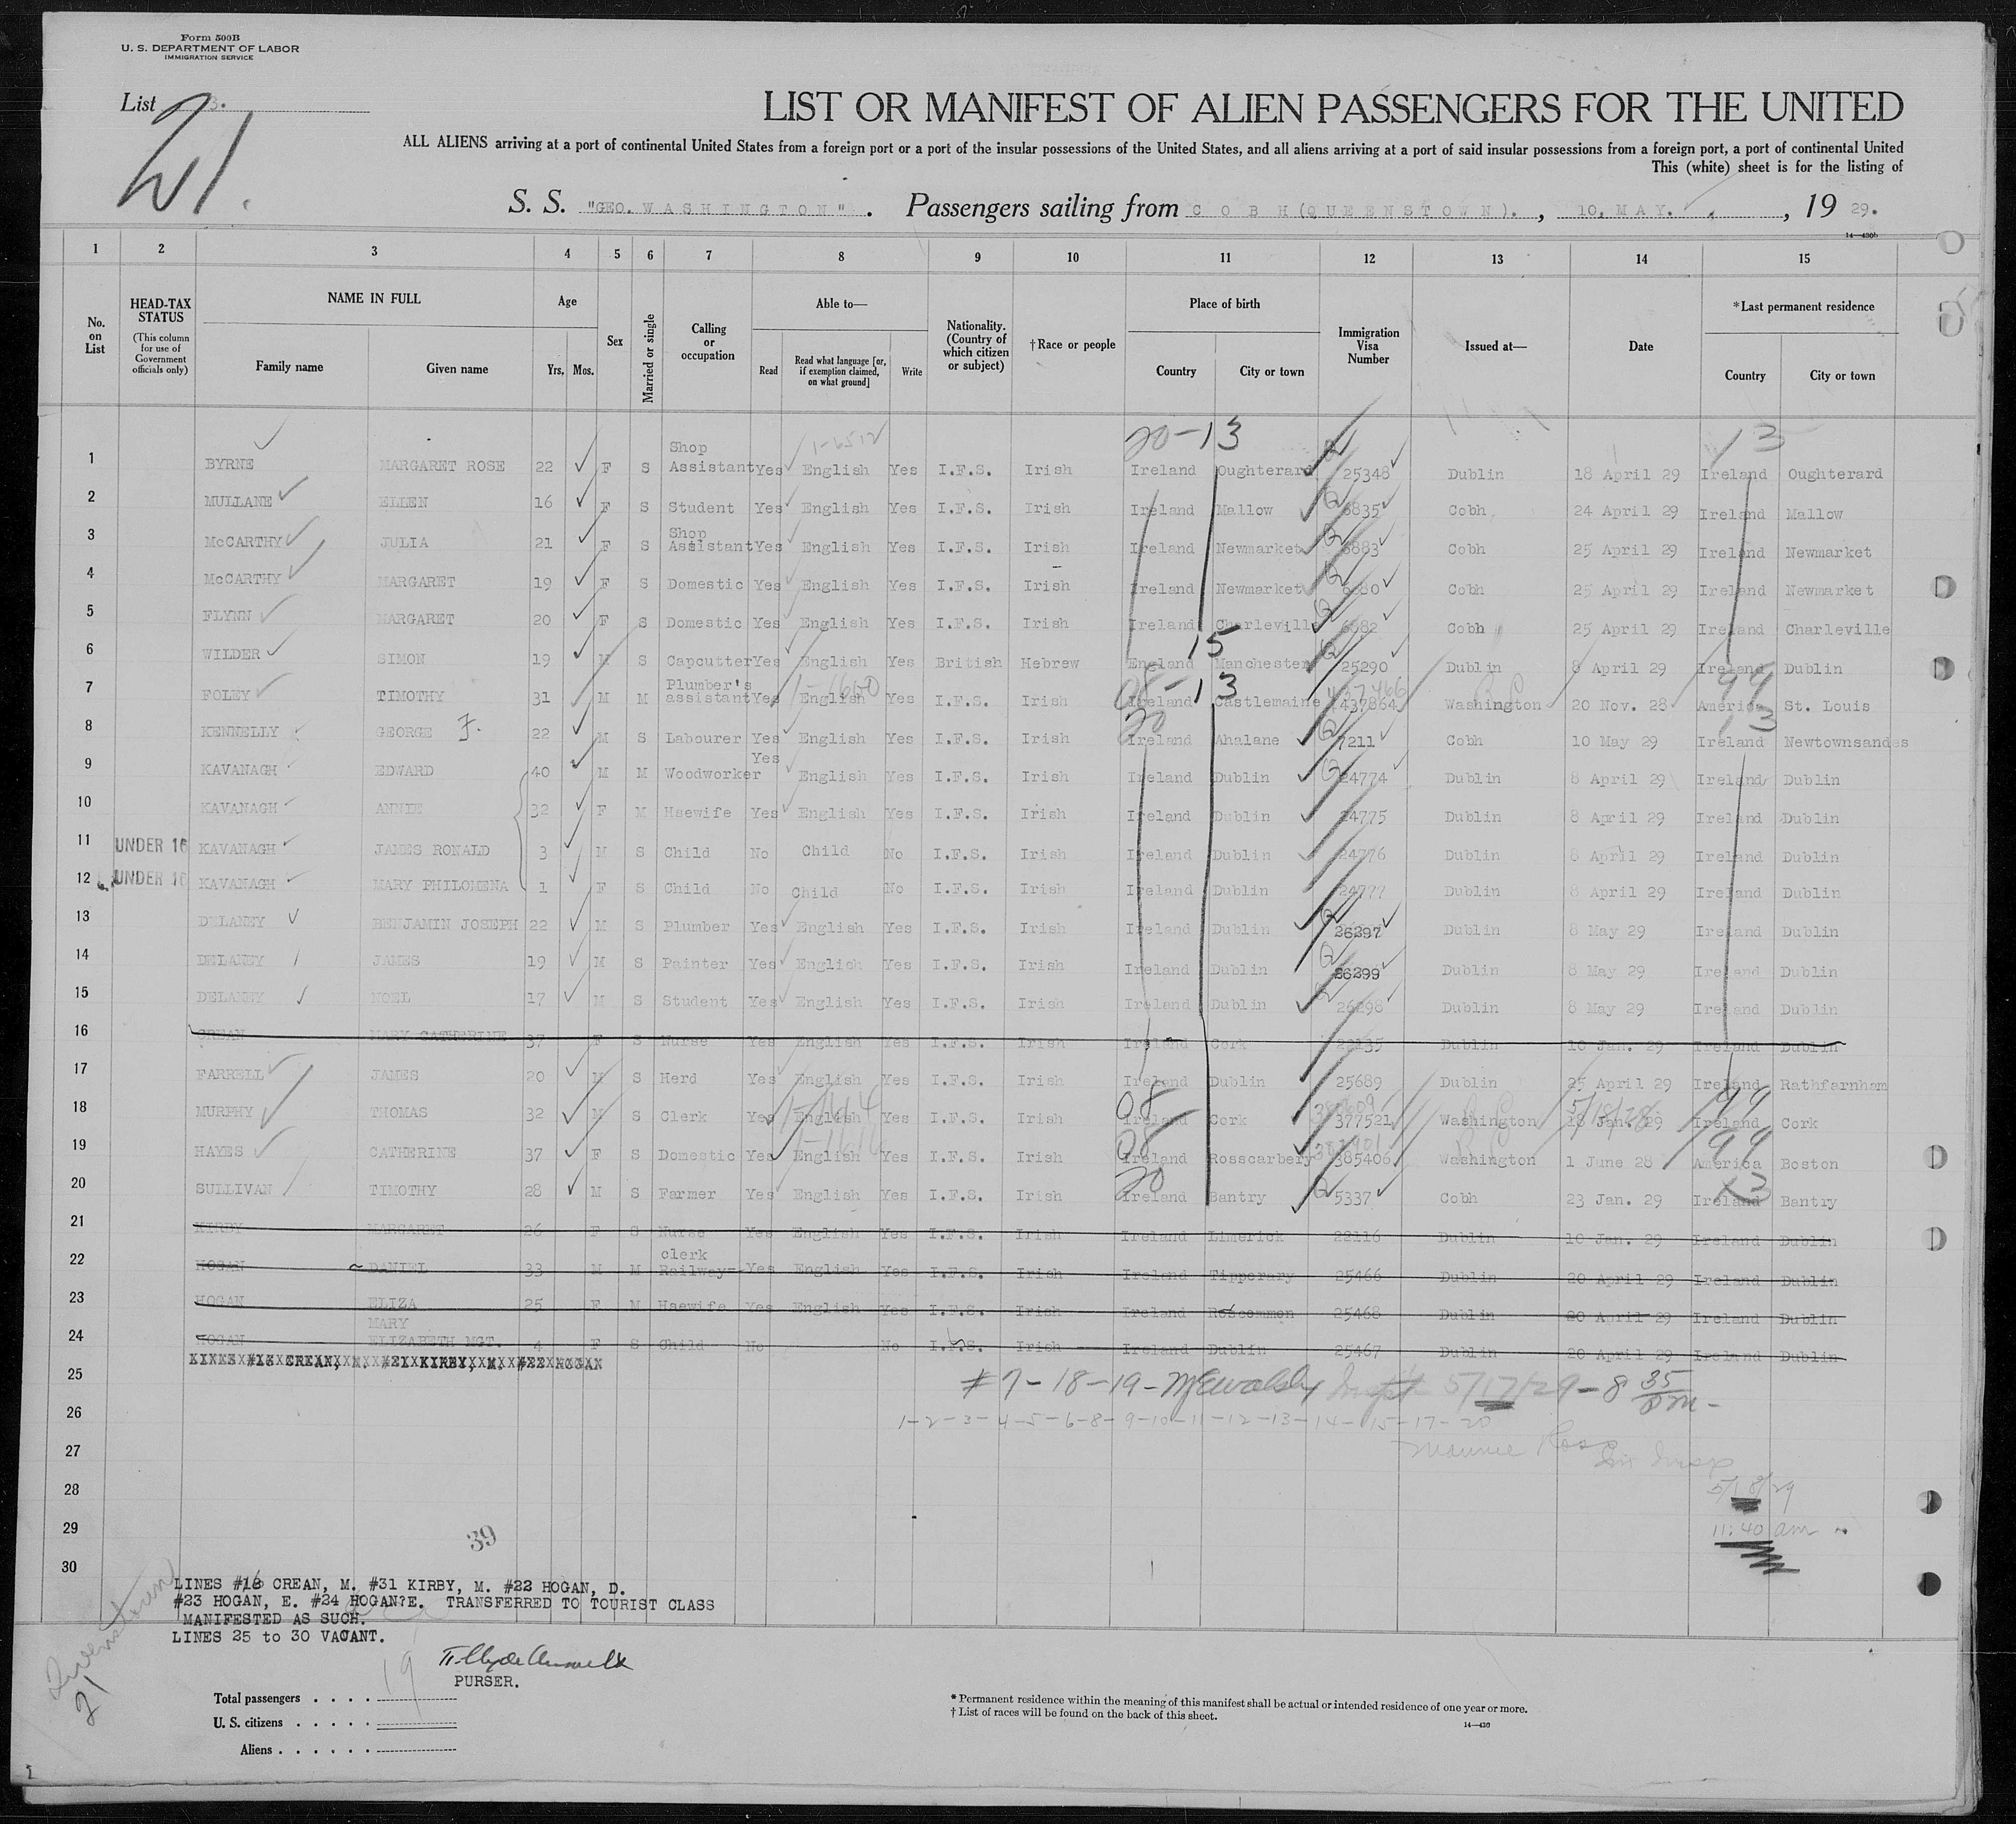 Form 500B
U. S. DEPARTMENT OF LABOR
IMMIGRATION SERVICE
List 3.
21.
LIST OR MANIFEST OF ALIEN PASSENGERS FOR THE UNITED
ALL ALIENS arriving at a port of continental United States from a foreign port or a port of the insular possessions of the United States, and all aliens arriving at a port of said insular possessions from a foreign port, a port of continental United
This (white) sheet is for the listing of
S. S. "GEO. WASHINGTON". Passengers sailing from COBH (QUEENSTOWN)., 10, MAY., 19 29.
14—430b
1 2 3 4 5 6 7 8 9 10 11 12 13 14 15
No. on List
HEAD-TAX STATUS (This column for use of Government officials only)
NAME IN FULL Family name Given name
Age Yrs. Mos.
Sex
Married or single
Calling or occupation
Able to— Read Read what language [or, if exemption claimed, on what ground] Write
Nationality. (Country of which citizen or subject)
†Race or people
Place of birth Country City or town
Immigration Visa Number
Issued at—
Date
*Last permanent residence Country City or town
20-13 13
1 BYRNE MARGARET ROSE 22 F S Shop Assistant Yes English Yes I.F.S. Irish Ireland Oughterard 25348 Dublin 18 April 29 Ireland Oughterard
2 MULLANE ELLEN 16 F S Student Yes English Yes I.F.S. Irish Ireland Mallow 6835 Cobh 24 April 29 Ireland Mallow
3 McCARTHY JULIA 21 F S Shop Assistant Yes English Yes I.F.S. Irish Ireland Newmarket 6883 Cobh 25 April 29 Ireland Newmarket
4 McCARTHY MARGARET 19 F S Domestic Yes English Yes I.F.S. Irish Ireland Newmarket Cobh 25 April 29 Ireland Newmarket
5 FLYNN MARGARET 20 F S Domestic Yes English Yes I.F.S. Irish Ireland Charleville 6682 Cobh 25 April 29 Ireland Charleville
15
6 WILDER SIMON 19 M S Capcutter Yes English Yes British Hebrew England Manchester 25290 Dublin 8 April 29 Ireland Dublin
08-13 1-1660 437466 99
7 FOLEY TIMOTHY 31 M M Plumber's assistant Yes English Yes I.F.S. Irish Ireland Castlemaine 437864 Washington 20 Nov. 28 America St. Louis
20 13
8 KENNELLY GEORGE F. 22 M S Labourer Yes English Yes I.F.S. Irish Ireland Ahalane 7211 Cobh 10 May 29 Ireland Newtownsandes
9 KAVANAGH EDWARD 40 M M Woodworker Yes English Yes I.F.S. Irish Ireland Dublin 24774 Dublin 8 April 29 Ireland Dublin
10 KAVANAGH ANNIE 32 F M Hsewife Yes English Yes I.F.S. Irish Ireland Dublin 24775 Dublin 8 April 29 Ireland Dublin
11 UNDER 16 KAVANAGH JAMES RONALD 3 M S Child No Child No I.F.S. Irish Ireland Dublin 24776 Dublin 8 April 29 Ireland Dublin
12 UNDER 16 KAVANAGH MARY PHILOMENA 1 F S Child No Child No I.F.S. Irish Ireland Dublin 24777 Dublin 8 April 29 Ireland Dublin
13 DELANEY BENJAMIN JOSEPH 22 M S Plumber Yes English Yes I.F.S. Irish Ireland Dublin 26297 Dublin 8 May 29 Ireland Dublin
14 DELANEY JAMES 19 M S Painter Yes English Yes I.F.S. Irish Ireland Dublin 26299 Dublin 8 May 29 Ireland Dublin
15 DELANEY NOEL 17 M S Student Yes English Yes I.F.S. Irish Ireland Dublin 26298 Dublin 8 May 29 Ireland Dublin
16 CREAN MARY CATHERINE 37 F S Nurse Yes English Yes I.F.S. Irish Ireland Cork 22135 Dublin 10 Jan. 29 Ireland Dublin
17 FARRELL JAMES 20 M S Herd Yes English Yes I.F.S. Irish Ireland Dublin 25689 Dublin 25 April 29 Ireland Rathfarnham
08 5/18/28 99
18 MURPHY THOMAS 32 M S Clerk Yes English Yes I.F.S. Irish Ireland Cork 377521 Washington 18 Jan. 29 Ireland Cork
08 99
19 HAYES CATHERINE 37 F S Domestic Yes English Yes I.F.S. Irish Ireland Rosscarbery 385406 Washington 1 June 28 America Boston
20 13
20 SULLIVAN TIMOTHY 28 M S Farmer Yes English Yes I.F.S. Irish Ireland Bantry 5337 Cobh 23 Jan. 29 Ireland Bantry
21 KIRBY MARGARET 26 F S Nurse Yes English Yes I.F.S. Irish Ireland Limerick 22116 Dublin 10 Jan. 29 Ireland Dublin
22 HOGAN DANIEL 33 M M clerk Railway= Yes English Yes I.F.S. Irish Ireland Tipperary 25466 Dublin 20 April 29 Ireland Dublin
23 HOGAN ELIZA 25 F M Hsewife Yes English Yes I.F.S. Irish Ireland Roscommon 25468 Dublin 20 April 29 Ireland Dublin
24 HOGAN MARY ELIZABETH MGT. 4 F S Child No No I.F.S. Irish Ireland Dublin 25467 Dublin 20 April 29 Ireland Dublin
LINES #16 CREAN, M. #21 KIRBY, M. #22 HOGAN
25 #7-18-19- 5/17/29-8 35 pm-
26 1-2-3-4-5-6-8-9-10-11-12-13-14-15-17-20
27
28 5/18/29
29 11:40 am
30
39
LINES #16 CREAN, M. #31 KIRBY, M. #22 HOGAN, D.
#23 HOGAN, E. #24 HOGAN?E. TRANSFERRED TO TOURIST CLASS
MANIFESTED AS SUCH.
LINES 25 to 30 VACANT.
Queenstown
21
PURSER.
19
Total passengers
U. S. citizens
Aliens
* Permanent residence within the meaning of this manifest shall be actual or intended residence of one year or more.
† List of races will be found on the back of this sheet.
14—430